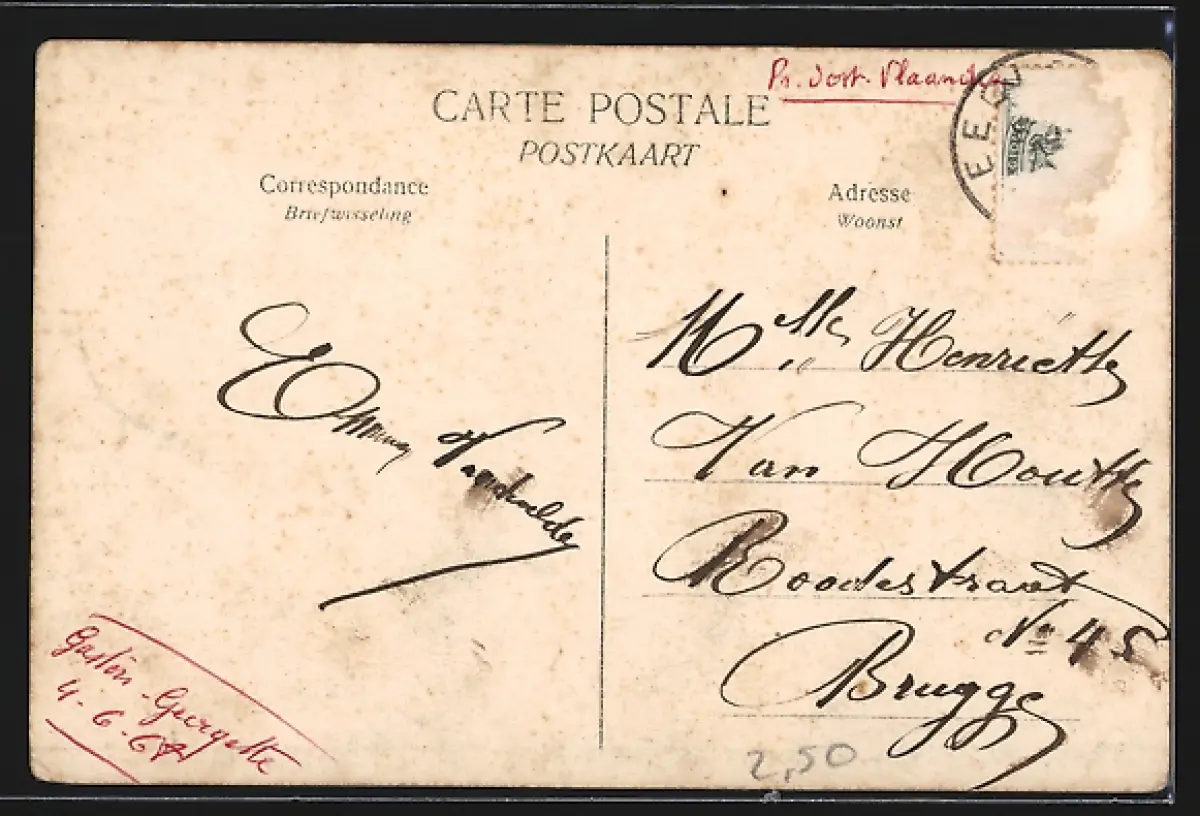 Pr. Oost-Vlaanderen
CARTE POSTALE
POSTKAART
EECL
Correspondance
Briefwisseling
Adresse
Woonst
Emma
Melle Henriette
Van Houtte
Roodestraat
No 45
Brugge
Gaston-Georgette
4-6-67
2,50